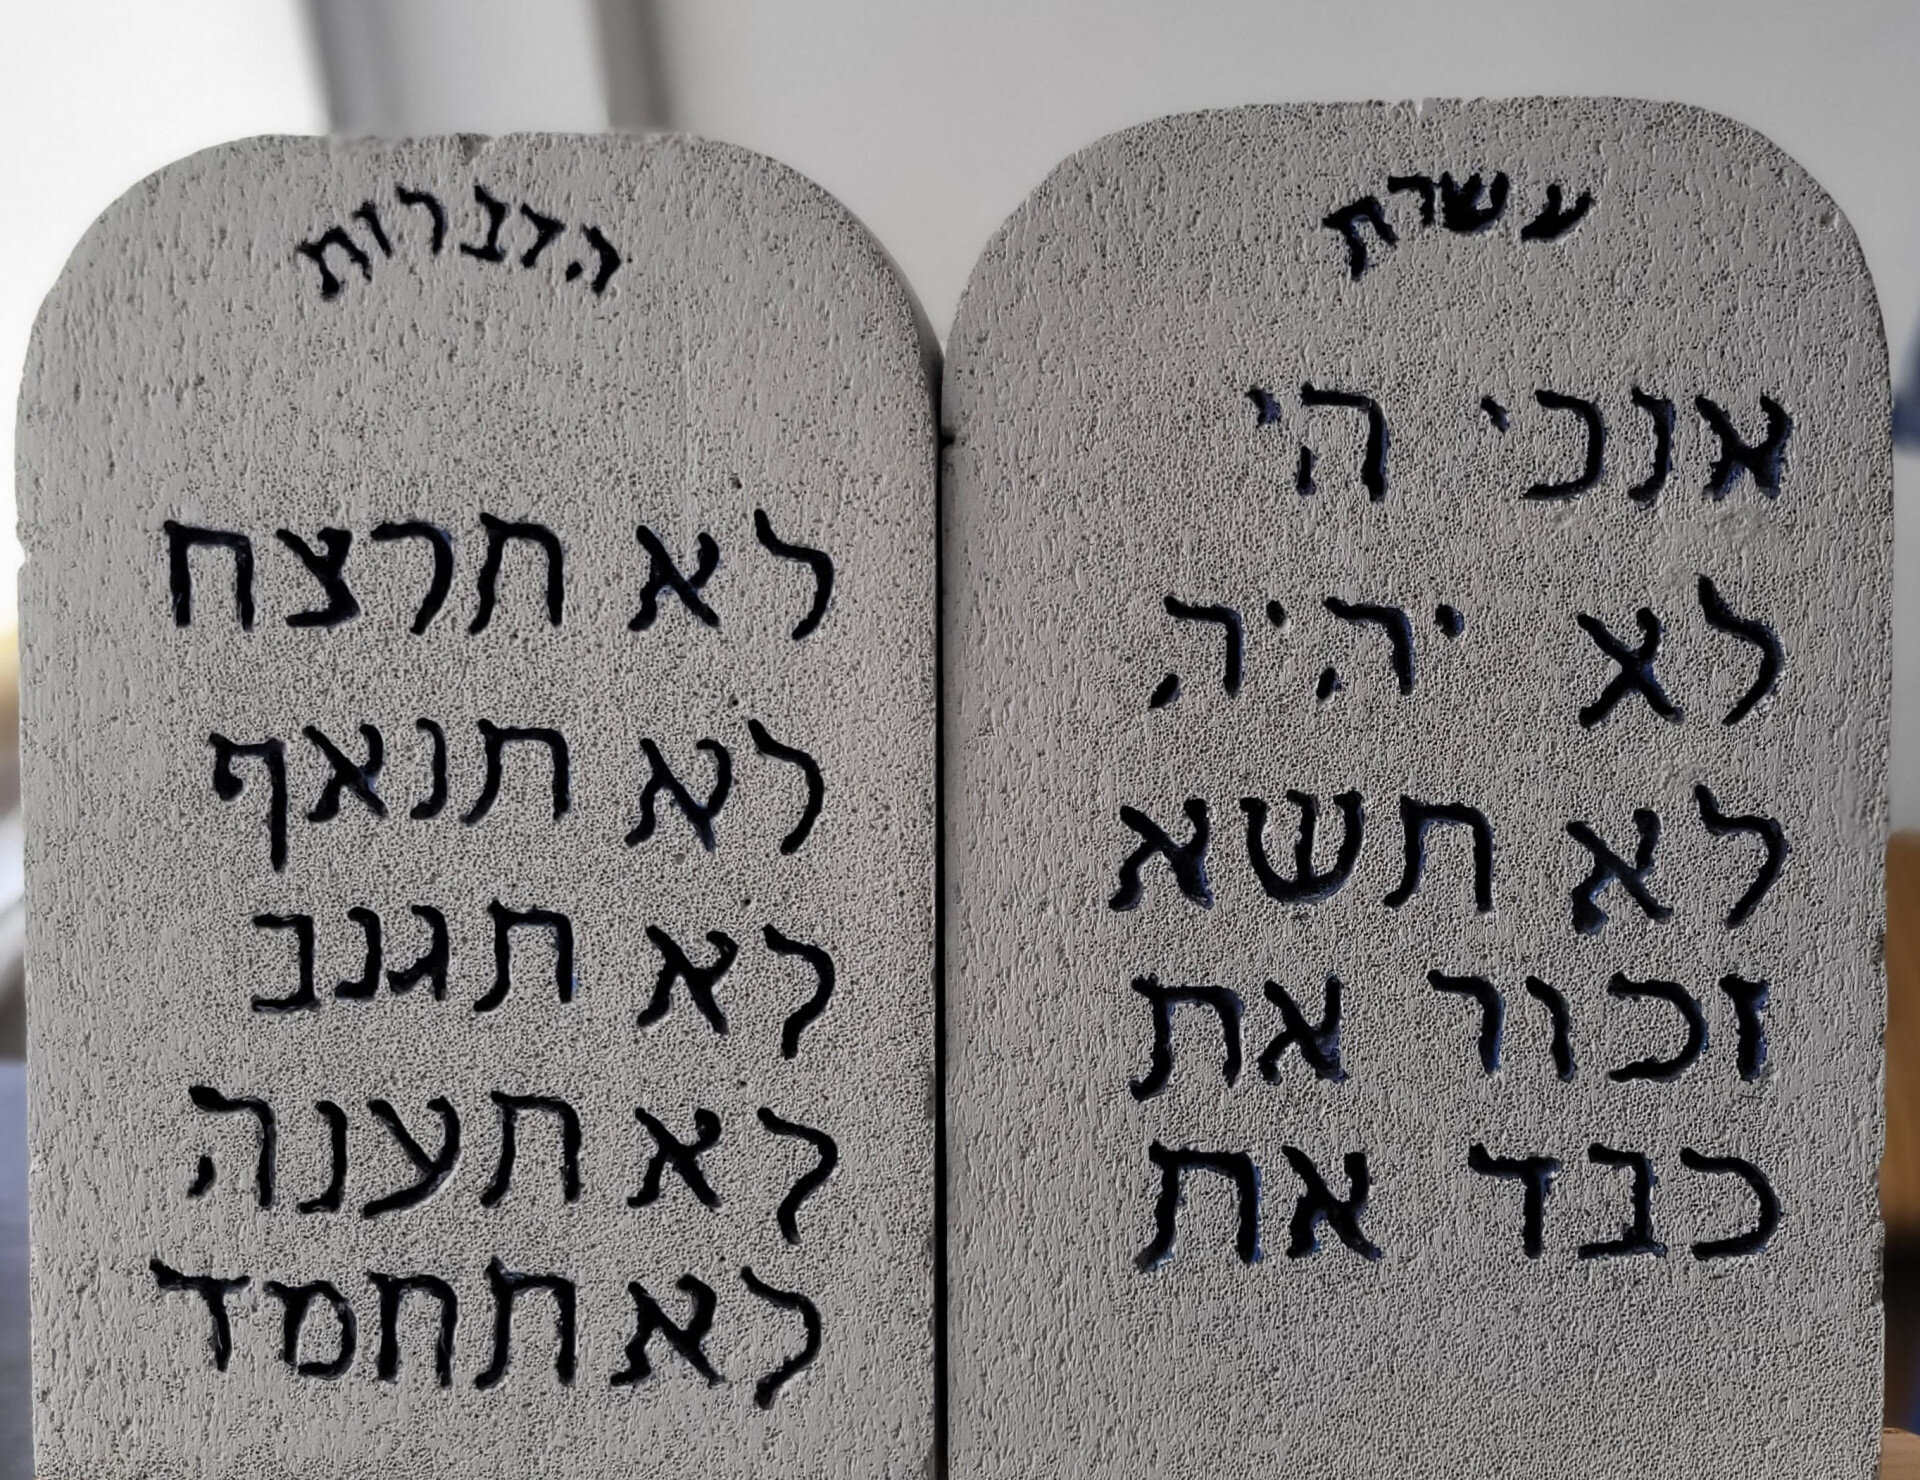 עשרת
אנכי הי
לא יהיה
לא תשא
זכור את
כבד את
הדברות
לא תרצח
לא תנאף
לא תגנב
לא תענה
לא תחמד